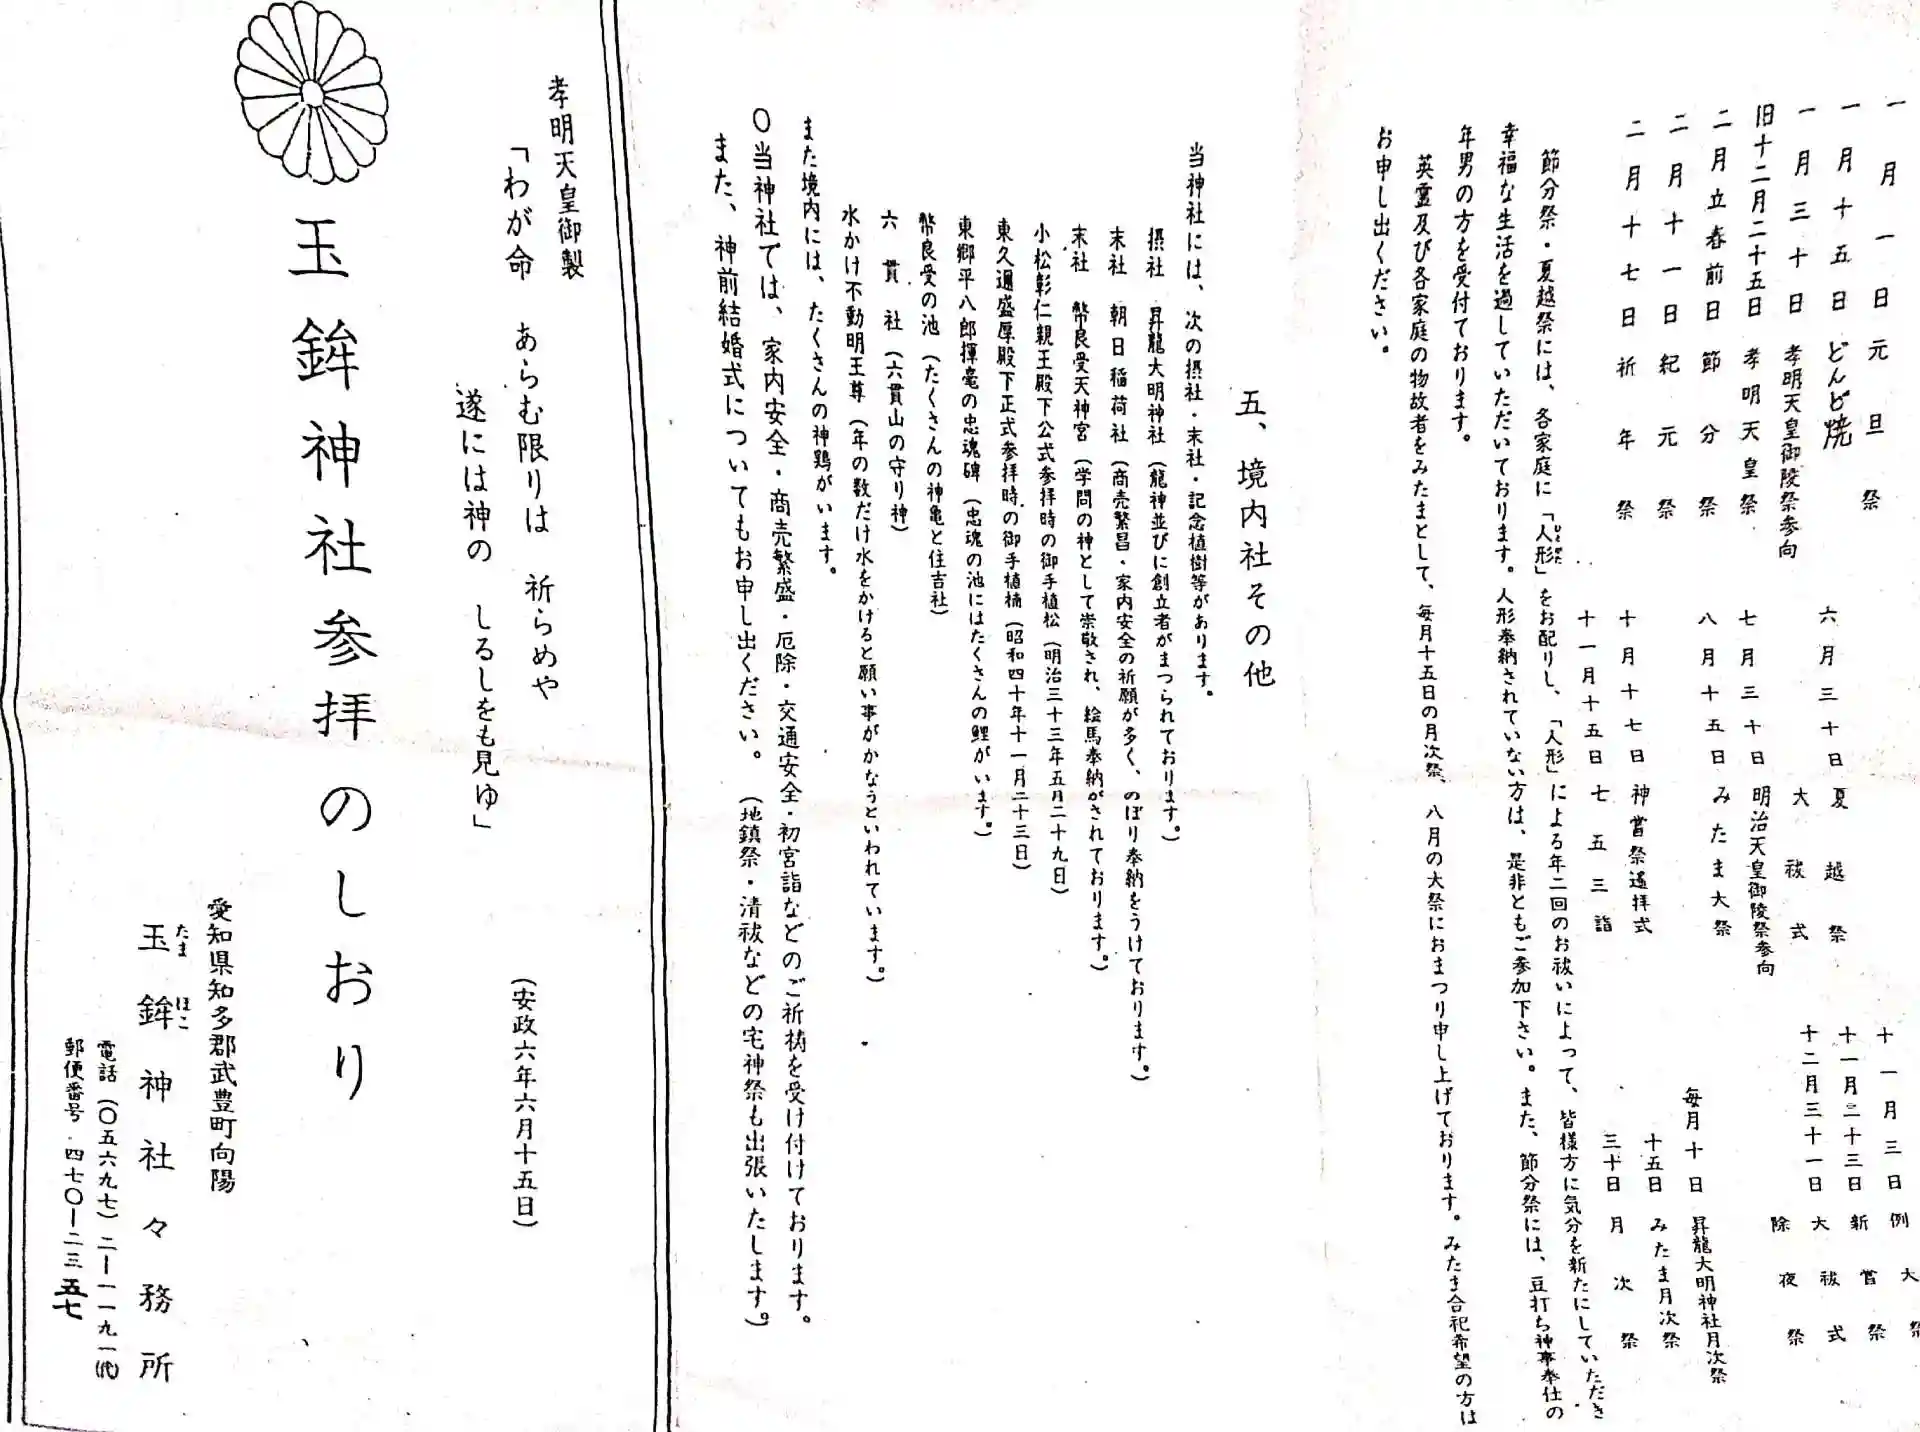 一月一日元旦祭
一月十五日どんど焼
一月三十日孝明天皇御陵祭参向
旧十二月二十五日孝明天皇祭
二月立春前日節分祭
二月十一日紀元祭
二月十七日祈年祭
六月三十日夏越祭
大祓式
七月三十日明治天皇御陵祭参向
八月十五日みたま大祭
十月十七日神嘗祭遙拝式
十一月十五日七五三詣
十一月三日例大祭
十一月二十三日新嘗祭
十二月三十一日大祓式
除夜祭
毎月十日昇龍大明神社月次祭
十五日みたま月次祭
三十日月次祭
節分祭・夏越祭には、各家庭に「人形」をお配りし、「人形」による年二回のお祓いによって、皆様方に気分を新たにしていただき
幸福な生活を過していただいております。人形奉納されていない方は、是非ともご参加下さい。また、節分祭には、豆打ち神事奉仕の
年男の方を受付ております。
英霊及び各家庭の物故者をみたまとして、毎月十五日の月次祭、八月の大祭におまつり申し上げております。みたま合祀希望の方は
お申し出ください。
五、境内社その他
当神社には、次の摂社・末社・記念植樹等があります。
摂社 昇龍大明神社(龍神並びに創立者がまつられております。)
末社 朝日稲荷社(商売繁昌・家内安全の祈願が多く、のぼり奉納をうけております。)
末社 幣良受天神宮(学問の神として崇敬され、絵馬奉納がされております。)
小松彰仁親王殿下公式参拝時の御手植松(明治三十三年五月二十九日)
東久邇盛厚殿下正式参拝時の御手植楠(昭和四十年十一月二十三日)
東郷平八郎揮毫の忠魂碑(忠魂の池にはたくさんの鯉がいます。)
幣良受の池(たくさんの神亀と住吉社)
六貫社(六貫山の守り神)
水かけ不動明王尊(年の数だけ水をかけると願い事がかなうといわれています。)
また境内には、たくさんの神鶏がいます。
〇当神社では、家内安全・商売繁盛・厄除・交通安全・初宮詣などのご祈祷を受け付けております。
また、神前結婚式についてもお申し出ください。(地鎮祭・清祓などの宅神祭も出張いたします。)
孝明天皇御製
「わが命 あらむ限りは 祈らめや
遂には神の しるしをも見ゆ」
(安政六年六月十五日)
玉鉾神社参拝のしおり
愛知県知多郡武豊町向陽
玉鉾神社々務所
たま ほこ
電話(〇五六九七)二―一一九一(代)
郵便番号・四七〇―二三五七